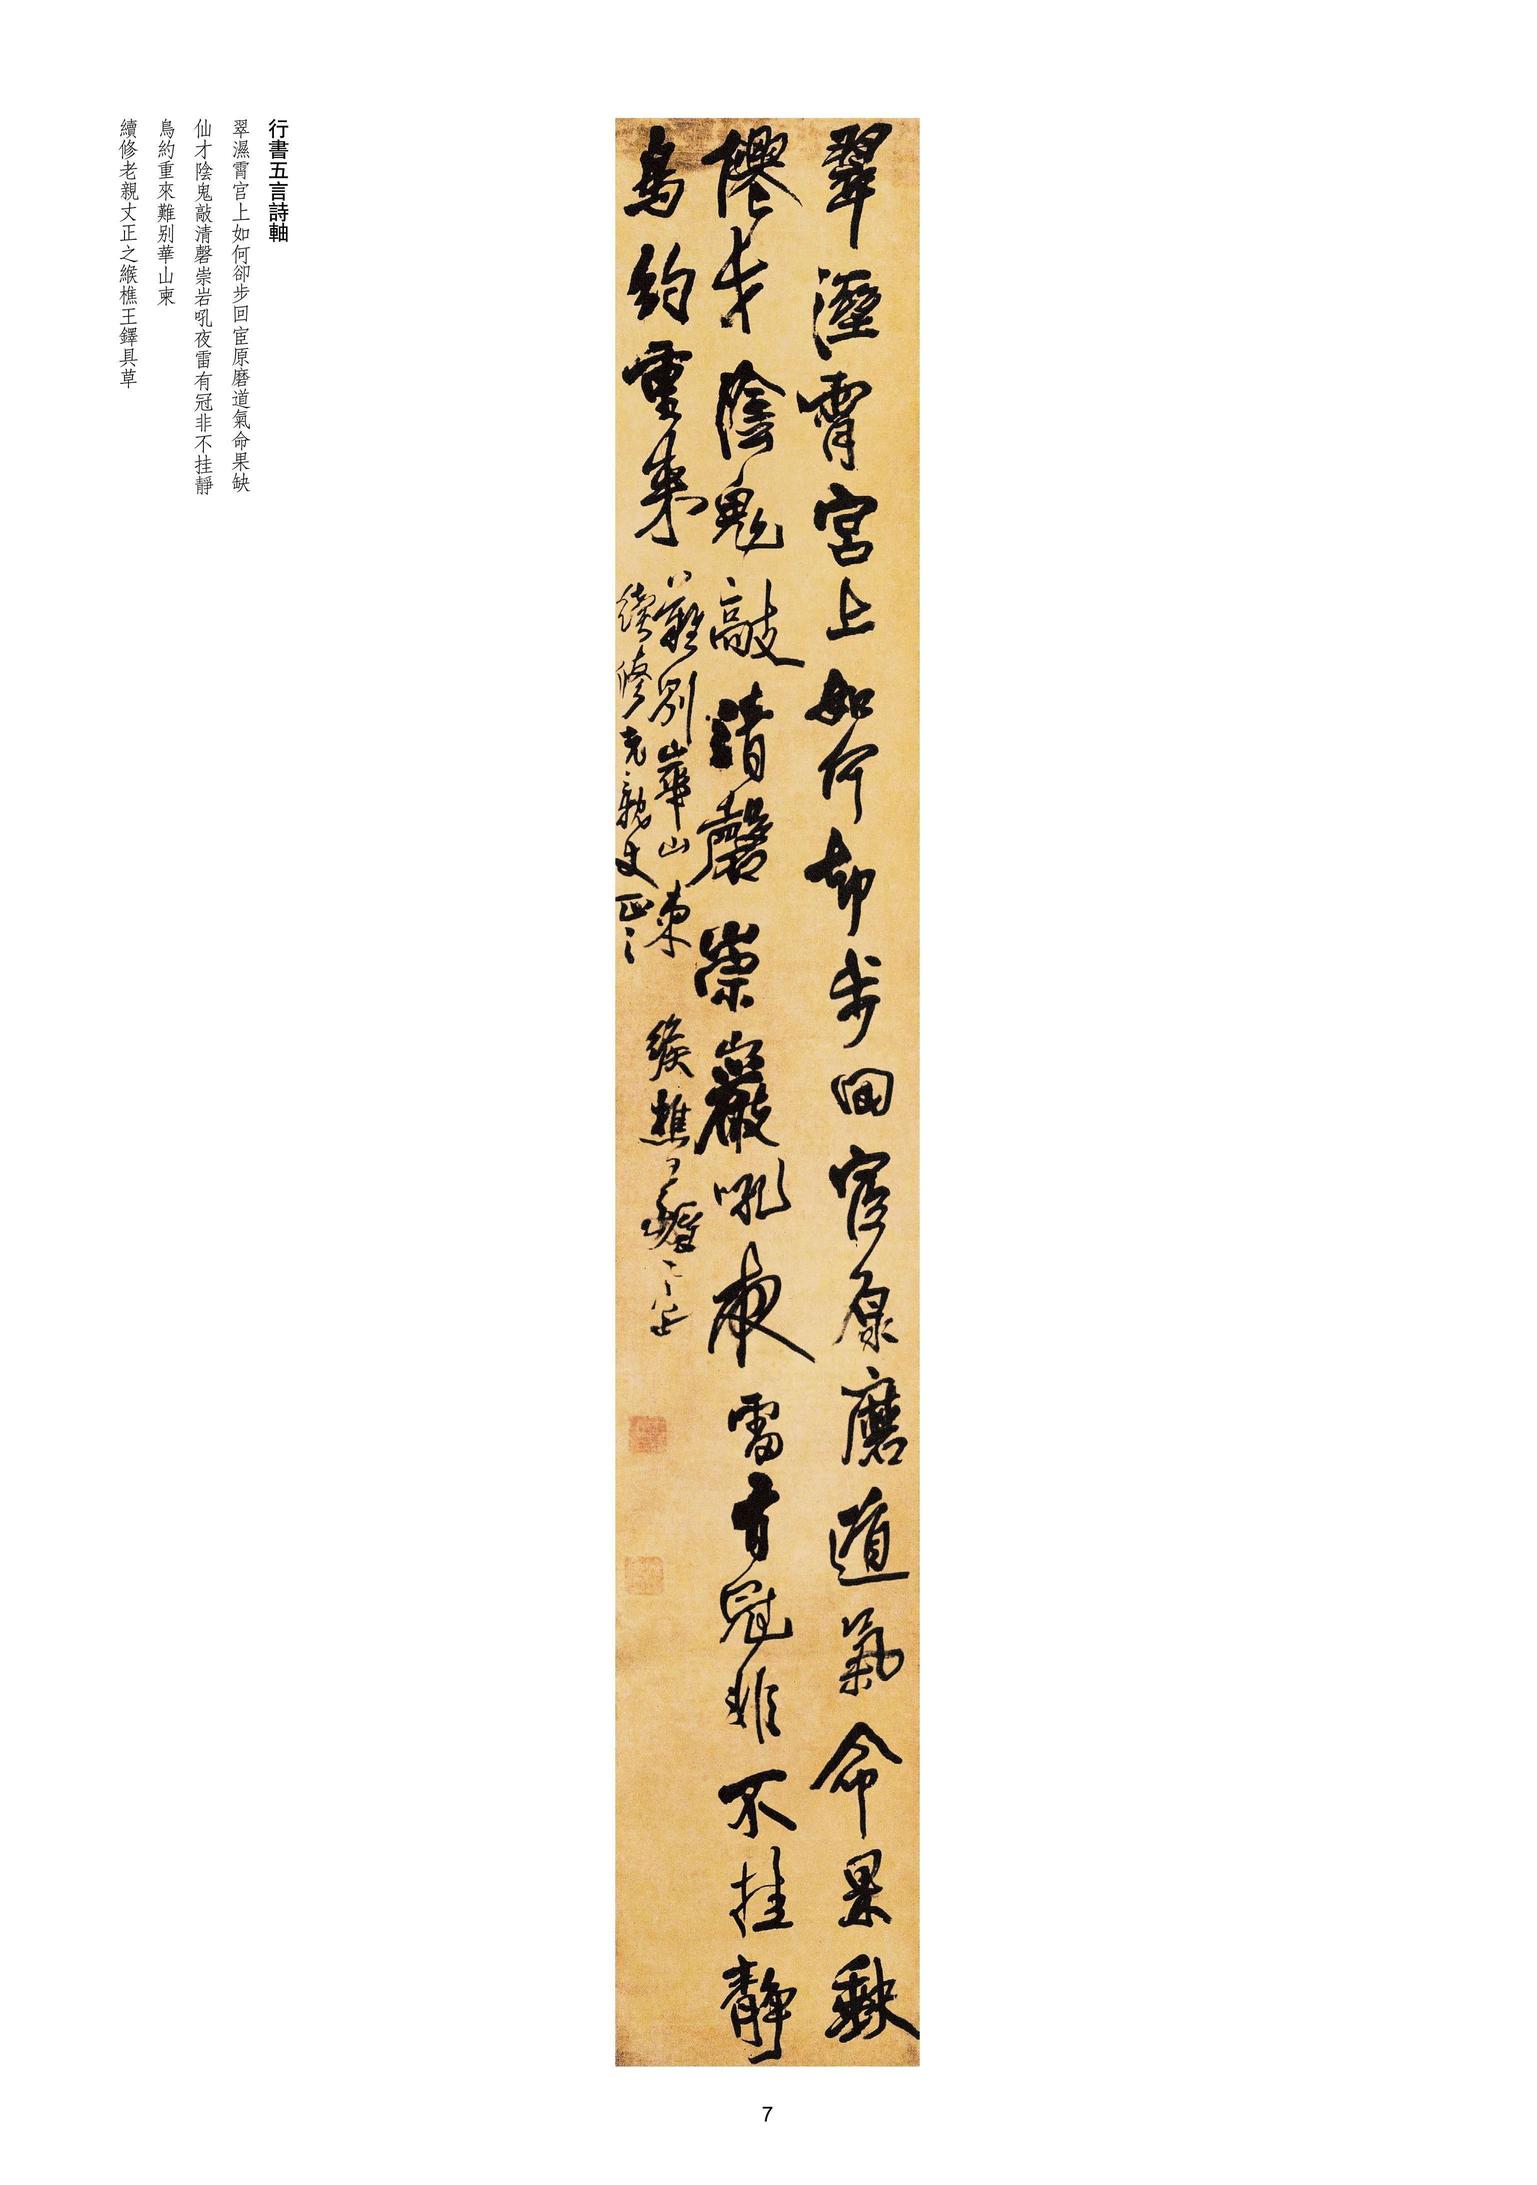 翠濕霄宮上如何却步回宦原磨道氣命果缺
僊才陰鬼敲清磬崇巖吼夜雷有冠非不挂靜
鳥約重來難別華山柬
續修老親丈正之
緱樵王鐸具草
行書五言詩軸
翠濕霄宫上如何卻步回宦原磨道氣命果缺
仙才陰鬼敲清磬崇岩吼夜雷有冠非不挂靜
鳥約重來難别華山柬
續修老親丈正之緱樵王鐸具草
7